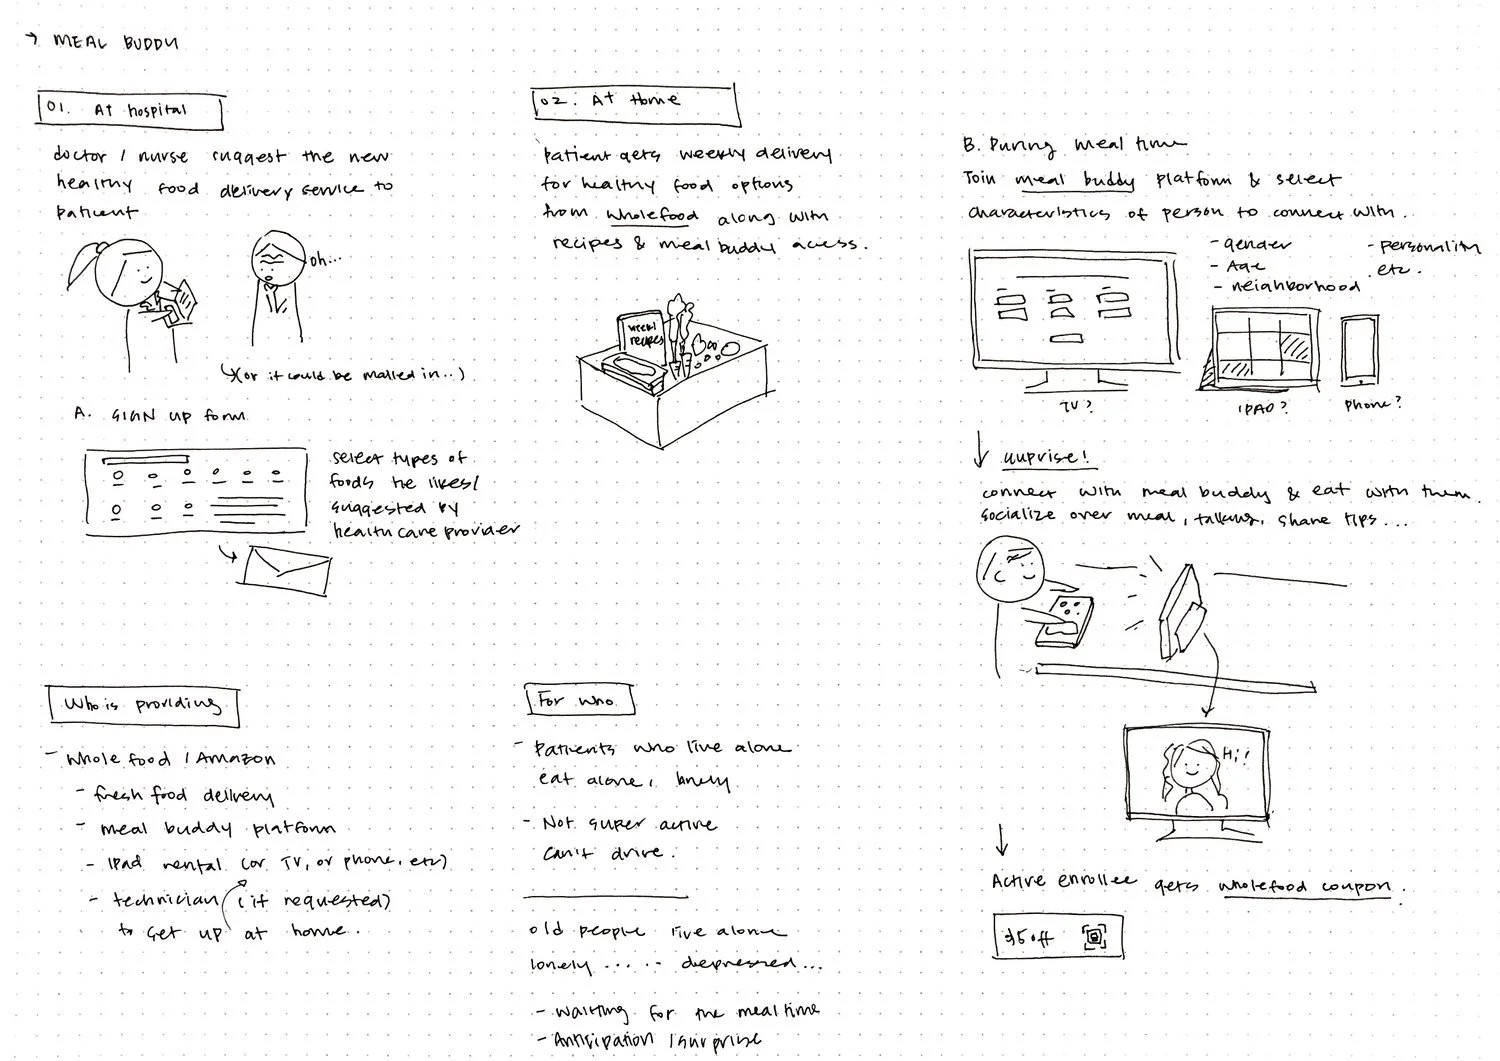 → MEAL BUDDY
01. At hospital
doctor / nurse suggest the new
healthy food delivery service to
patient
oh...
(or it could be mailed in..)
A. SIGN up form
select types of
foods he likes/
suggested by
health care provider
02. At Home
patient gets weekly delivery
for healthy food options
from wholefood along with
recipes & meal buddy access.
weekl
recipes
B. During meal time
Join meal buddy platform & select
characteristics of person to connect with.
- gender
- Age
- neighborhood
- personality
etc.
TV?
IPAD?
phone?
↓ surprise!
connect with meal buddy & eat with them.
socialize over meal, talking, share tips...
Hi!
↓
Active enrollee gets wholefood coupon.
$5 off
Who is providing
- whole food / Amazon
- fresh food delivery
- meal buddy platform
- IPad rental (or TV, or phone, etc)
- technician (if requested)
to set up at home.
For who
- Patients who live alone
eat alone, lonely
- Not super active
can't drive.
old people live alone
lonely ..... depressed...
- waiting for the mealtime
- Anticipation / surprise